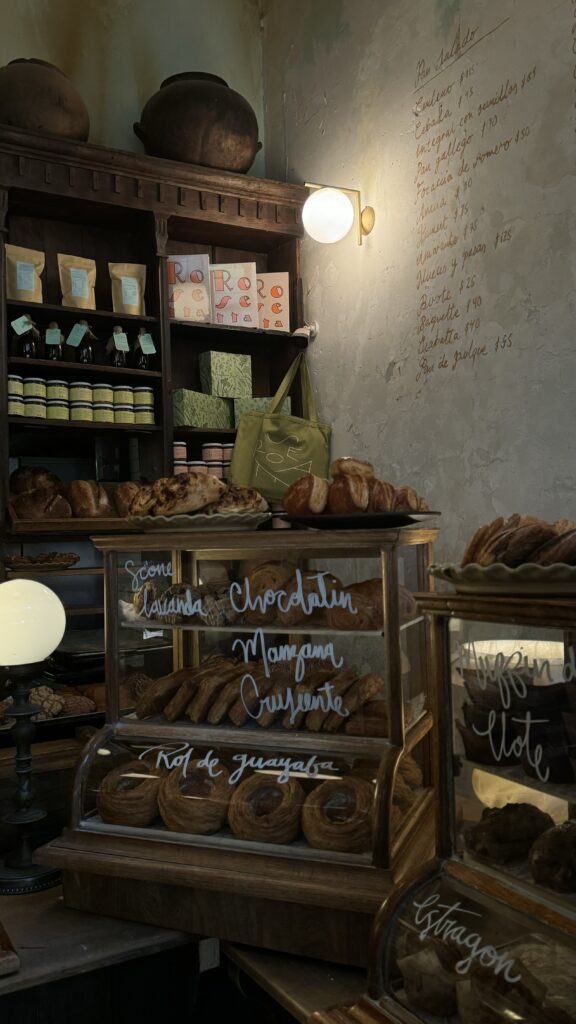 Pan Salado
Centeno $115
Cebada $75
integral con semillas $85
Pan gallego $70
Focaccia de romero $50
$90
$75
Amaranto $75
Nueces y pasas $125
Birote $25
Baguette $40
Ciabatta $40
Pan de pulque $55
Ro
se
tta
Ro
se
tta
Ro
se
tta
Scone
Lavanda
Chocolatin
Manzana
Crujiente
Rol de guayaba
Muffin d
Elote
Estragon